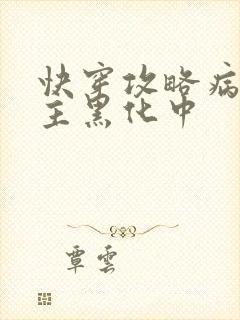 快穿攻略病
主黑化中
覃雲